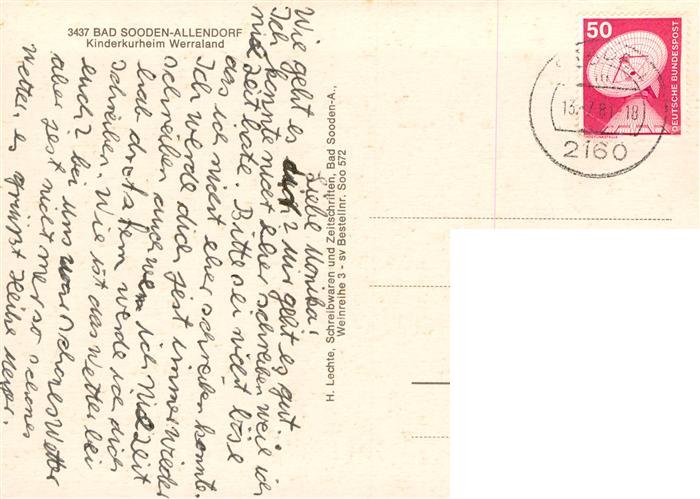 3437 BAD SOODEN-ALLENDORF
Kinderkurheim Werraland
Liebe Monika!
Wie geht es dich? Mir geht es gut.
Ich konnte nicht eher schreiben weil ich
nie Zeit hate. Bitte sei nicht böse
das ich nicht eher schreiben konnte.
Ich werde dich jest immer wieder
schreiben auch wenn ich nie Zeit
hab drotstem werde ich dich
schreiben. Wie ist das Wetter bei
euch? bei uns war schones Wetter
aber jest nicht mer so schönes
Wetter, es grüßt Heike Meyer.
H. Lechte, Schreibwaren und Zeitschriften, Bad Sooden-A.,
Weinreihe 3 - sv Bestellnr. Soo 572
50
DEUTSCHE BUNDESPOST
13.-7.81-18
2160